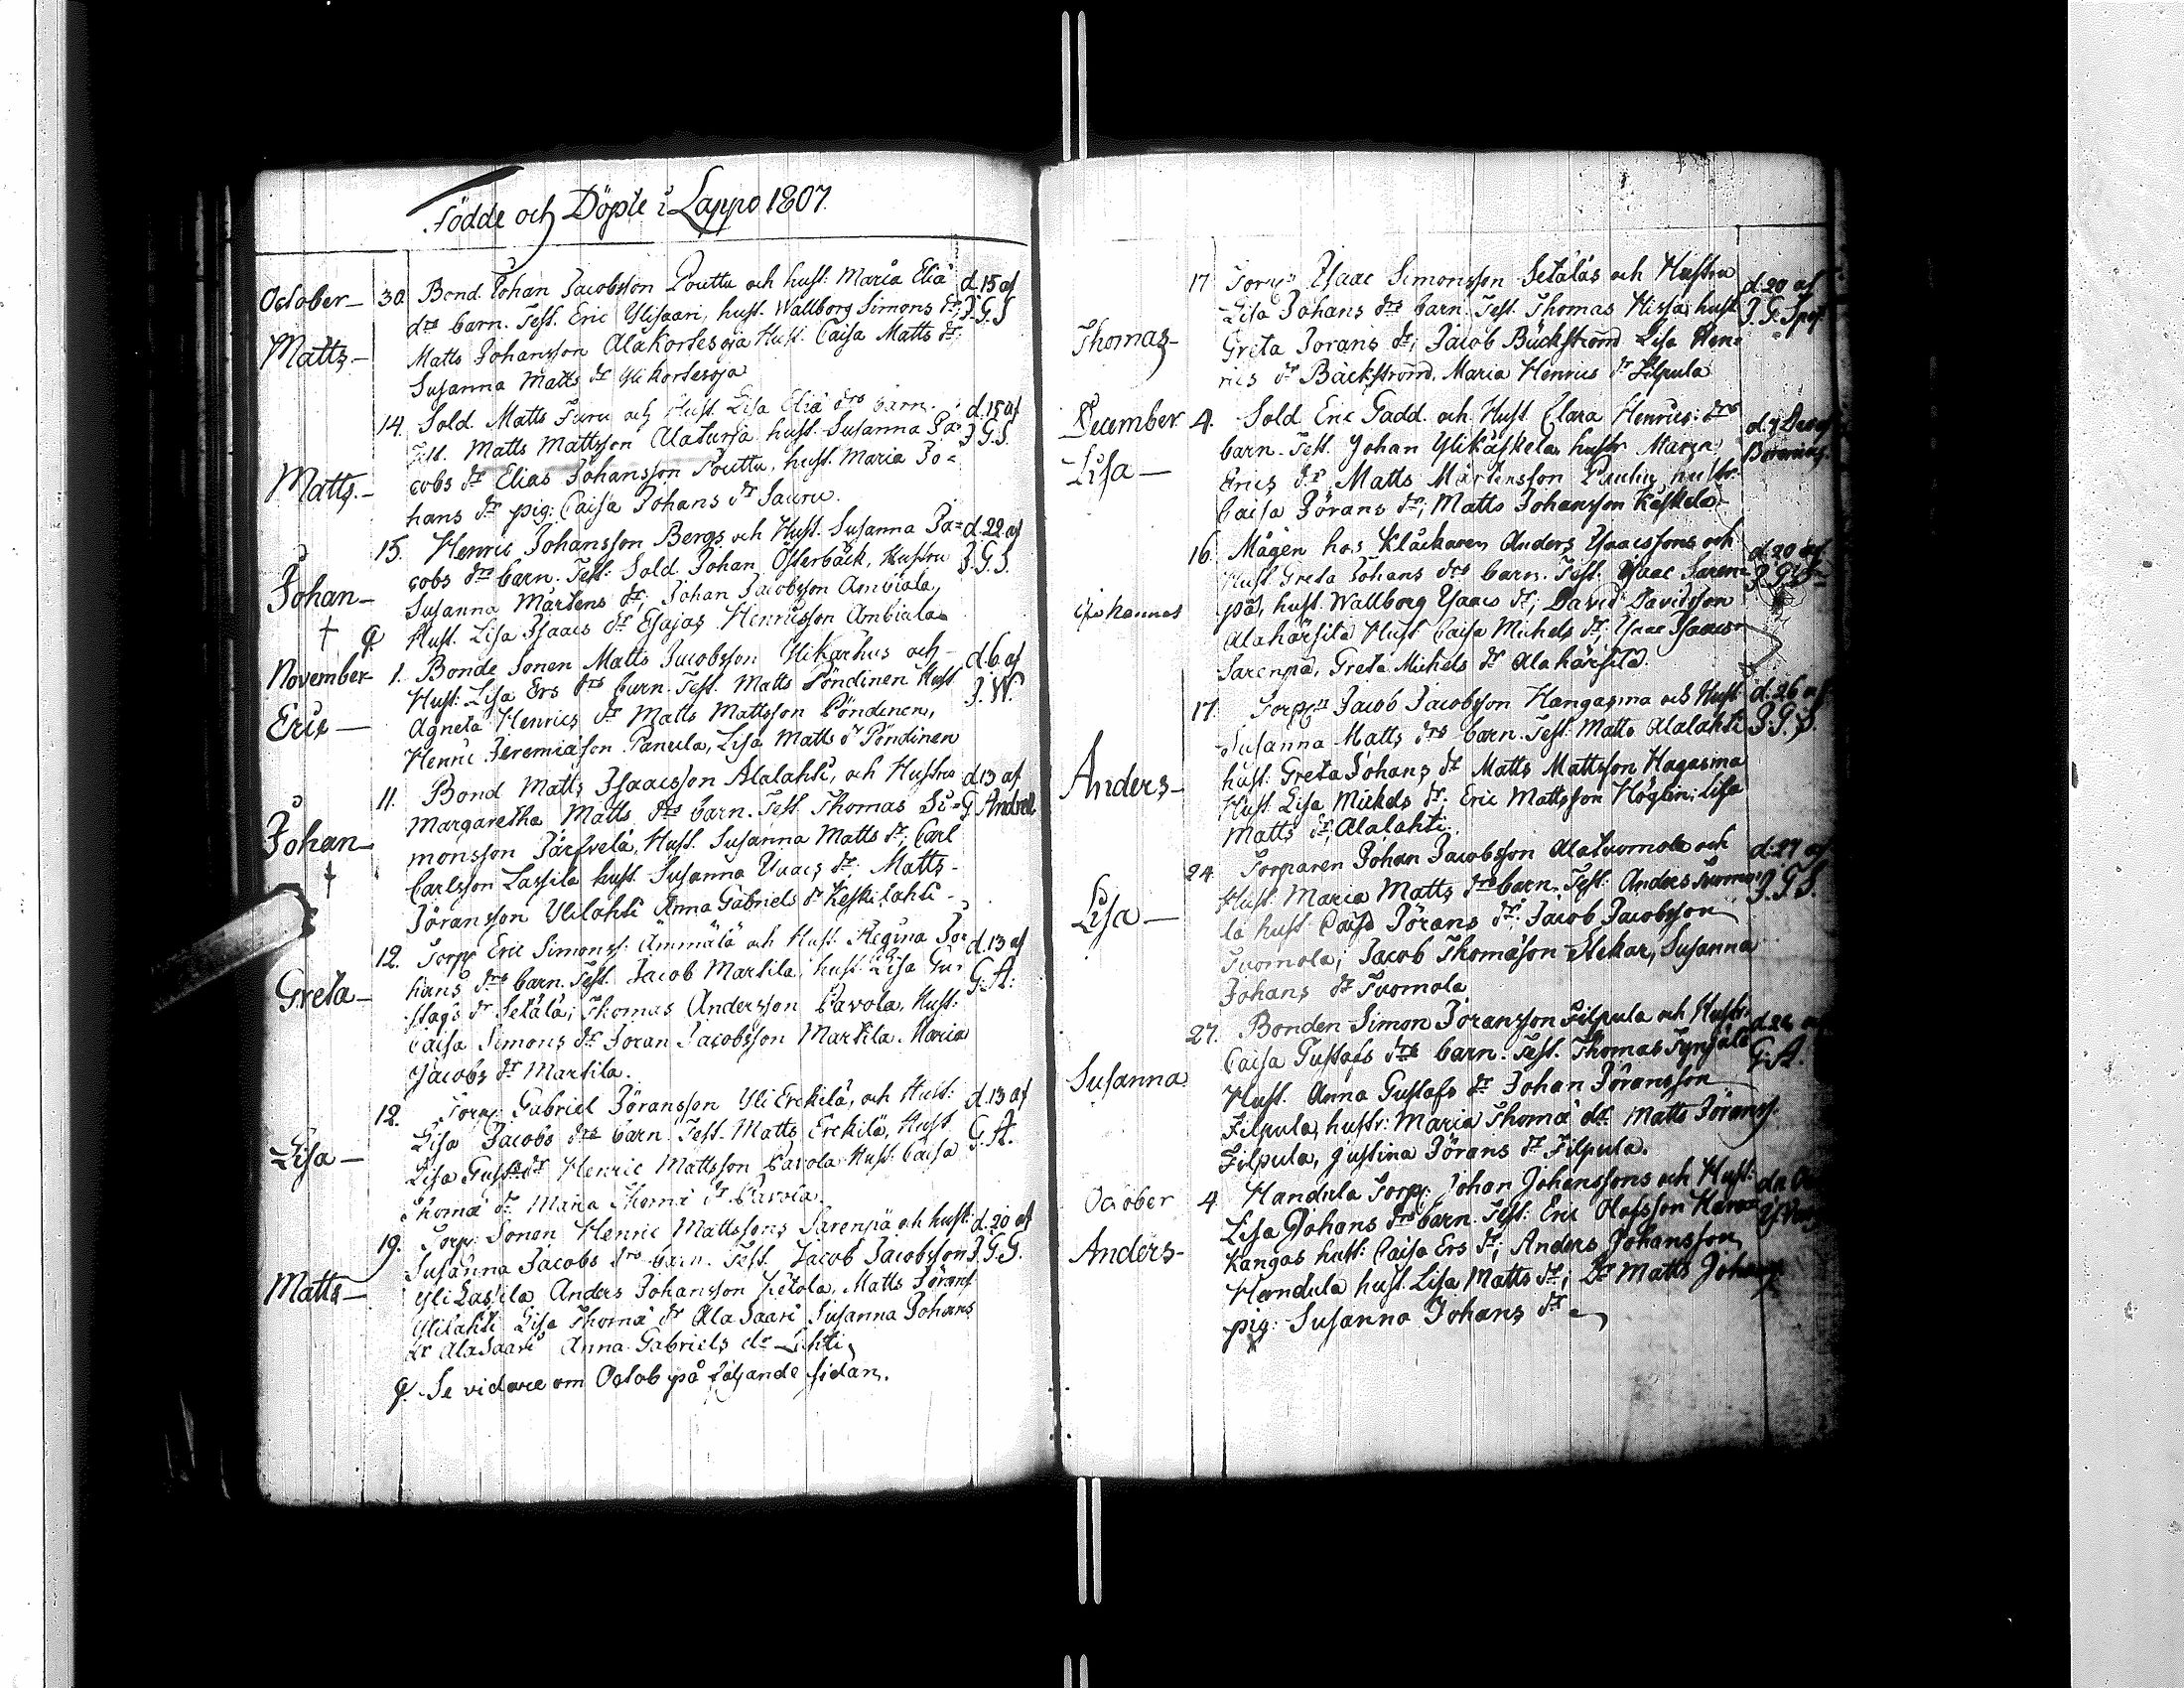 Födde och Döpte i Lappo 1807.
October 30 Bond. Johan Jacobsson Poutta och hust: Maria Eliæ d. 15 af
drs barn. Test. Eric Ylisaari, hust. Wallborg Simons dr; J.G.S
Matts Matts Johansson Alakortesoja Hust. Caisa Matts dr;
Susanna Matts dr Ylikortesoja
14. Sold. Matts Furu och Hust. Lisa Eliæ drs barn. d. 15 af
Test. Matts Mattsson Alaturja hust. Susanna Ja= J.G.S.
Matts. cobs dr Elias Johansson Poutta, hust. Maria Jo=
hans dr pig: Caisa Johans dr Sauru.
15. Henric Johansson Bergs och Hust. Susanna Ja= d. 22 af
cobs drs barn. Test: Sold Johan Österbäck, Hustru J.G.S.
Johan Susanna Mårtens dr; Johan Jacobsson Ambiala,
† Hust. Lisa Isaacs dr Esajas Henricsson Ambiala
November 1. Bonde Sonen Matts Jacobsson Ylikarhus och d. 6 af
Hust: Lisa Ers drs barn. Test. Matts Pöndinen Hust J.W.
Eric Agneta Henrics dr Matts Mattsson Pöndinen,
Henric Jeremiæson Panula, Lisa Matts dr Pöndinen
11. Bond Matts Isaacsson Alalahti, och Hustru d. 13 af
Margaretha Matts drs barn. Test. Thomas Si= G. Andell
Johan monsson Järfvelä, Hust. Susanna Matts dr; Carl
† Carlsson Lassila hust. Susanna Isaacs dr; Matts
Jöransson Ylilahti Anna Gabriels dr Keskilahti
12. Torp Eric Simonss: Ämmälä och Hust. Regina Jo= d. 13 af
hans drs barn. Test. Jacob Martila, hust. Lisa Gu= G.A:
Greta stafs dr Setälä; Thomas Andersson Pavola, Hust:
Caisa Simons dr Joran Jacobsson Martila. Maria
Jacobs dr Martila.
12. Torp: Gabriel Jöransson Yli Erckilä, och Hust: d. 13 af
Lisa Jacobs drs barn Test. Matts Erckilä, Hust G.A.
Lisa Lisa Gust: dr Henric Mattsson Pavola Hust: Caisa
Thomæ dr Maria Thomæ dr Pavola.
19. Torp: Sonen Henric Mattssons Sarenpä och hust: d. 20 af
Susanna Jacobs drs barn. Test. Jacob Jacobsson J.G.S.
Matts Yli Lassila Anders Johansson Jietola, Matts Jörans
Ylilahti Lisa Thomæ dr Ala Saari Susanna Johans
dr Ala Saari Anna Gabriels dr Lahti
Se vidare om Octob på följande sidan.
17 Torp Isaac Simonsson Setäläs och Hustru d. 20 af
Lisa Johans drs barn. Test. Thomas Hissa, hust J.G.
Thomas Greta Jorans dr; Jacob Bäckström Lisa Hen=
rics dr Bäckström. Maria Henrics dr Filpula
December 4. Sold Eric Gadd. och Hust Clara Henrics: drs
barn. Test. Johan Ylikäskela hustr Maria
Lisa Erics dr Matts Mårtensson Paulin, hustr
Caisa Jörans dr; Matts Johansson Käskela
16. Mågen hos Klåckaren Anders Isaacssons och d. 20 af
Hust. Greta Johans drs barn. Test. Isaac Saren= J.G.S
Johannes pä, hust. Wallborg Isaacs dr; David Davidsson
Alahärsilä Hust Caisa Michels dr; Isaac Isaacs
Sarenpä, Greta Michels dr Alahärsilä.
17. Jacob Jacobsson Hangasma och Hust d. 26 af
Susanna Matts drs barn. Test. Matts Alalahti J.G.S.
Anders hust. Greta Johans dr Matts Mattsson Hagasma
Hust Lisa Mickels dr; Eric Mattsson Höglin; Lisa
Matts dr; Alalahti.
24. Torparen Johan Jacobsson Alatuomola och d. 27 af
Hust. Maria Matts drs barn. Test. Anders Tuomo= J.G.S.
Lisa la hust Caisa Jörans dr: Jacob Jacobsson
Tuomola; Jacob Thomæson Stekar, Susanna
Johans dr Tuomola
27. Bonden Simon Joransson Filpula och Hustr:
Caisa Gustafs drs barn. Test. Thomas G.A.
Susanna Hust. Anna Gustafs dr Johan Jöransson
Filpula, hustr: Maria Thomæ dr Matts Jöranss.
Filpula, Justina Jörans dr Filpula.
October 4 Handula Torp: Johan Johanssons och Hust:
Lisa Johans drs barn. Test: Eric Olofsson
Anders Kangas hust: Caisa Ers dr; Anders Johansson
Handula hust. Lisa Matts dr; Dr Matts
pig: Susanna Johans dr